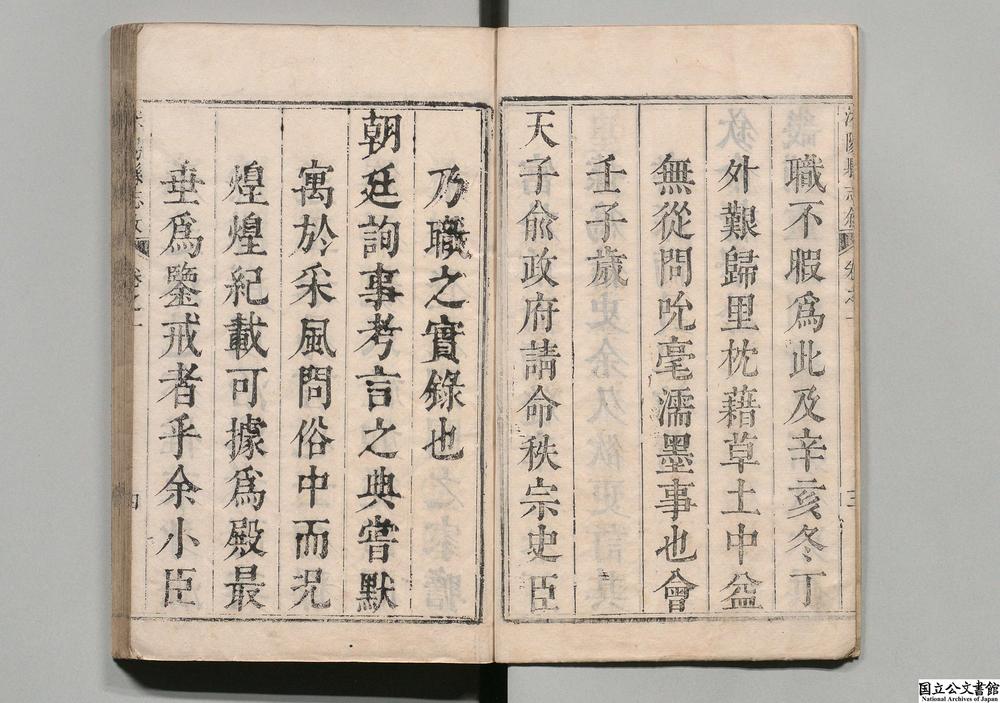 職不暇爲此及辛亥冬丁
外艱歸里枕藉草土中益
無從問吮毫濡墨事也會
壬子歲
天子俞政府請命秩宗史臣
三
乃職之實錄也
朝廷詢事考言之典嘗默
寓於采風問俗中而况
煌煌紀載可據爲殿最
垂爲鑒戒者乎余小臣
四
国立公文書館
National Archives of Japan